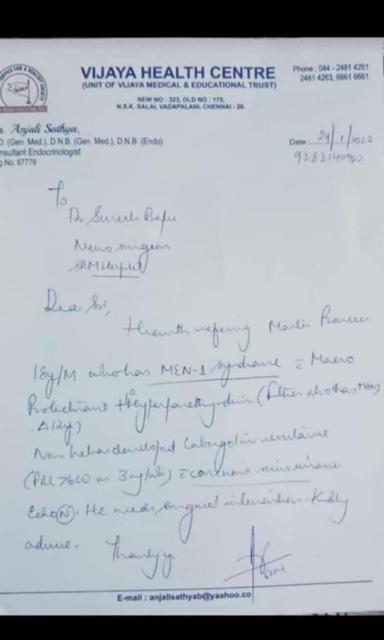 VIJAYA HEALTH CENTRE
(UNIT OF VIJAYA MEDICAL & EDUCATIONAL TRUST)
NEW NO : 323, OLD NO : 175,
N.S.K. SALAI, VADAPALANI, CHENNAI - 26.
Phone : 044 - 2481 4261
2481 4263, 6661 6661
Anjali Sathya,
(Gen. Med.), D.N.B. (Gen. Med.), D.N.B. (Endo)
nsultant Endocrinologist
g.No. 67779
Date :
To
Dr Suresh Bapu
Neuro surgeon
SRM Hospital
Dear Sir,
Herewith refering Martin Praveen
18y/M who has MEN-1 syndrome c̄ Macro
Prolactinoma + Hyperparathyroidism (Father also has
Now he has developed Cabergolin resistance
(PRL 7600 on 3mg/wk) c̄
Echo (N). He needs surgical intervention. Kindly
advise.
Thank you
E-mail : anjalisathyab@yaahoo.co